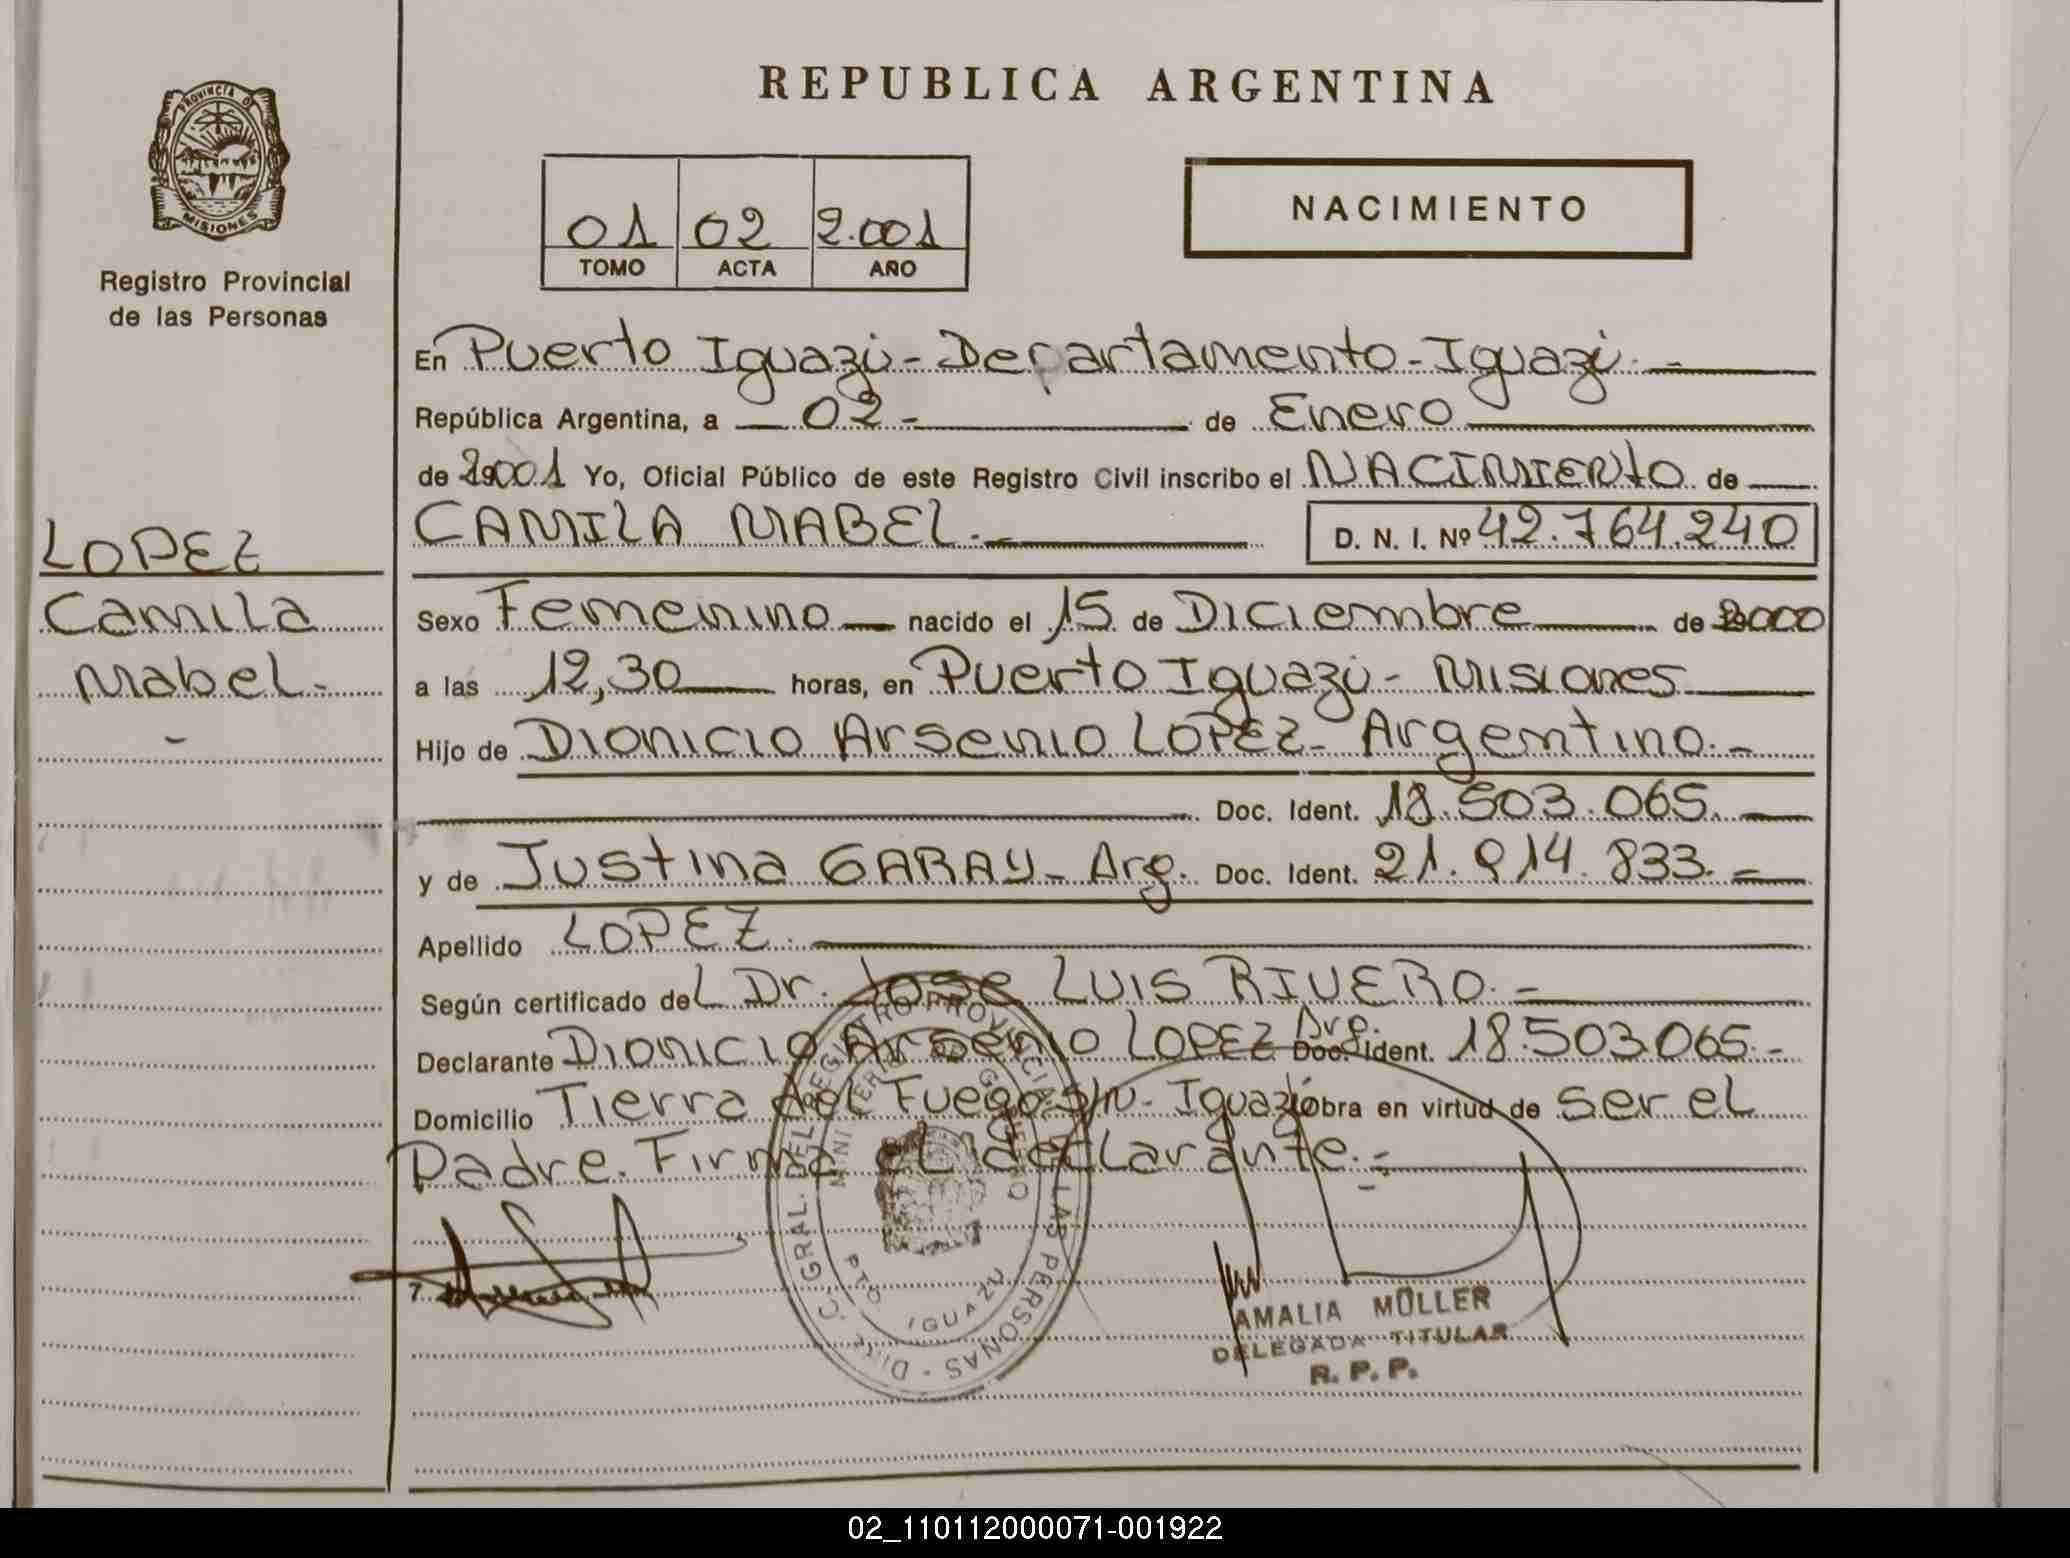 REPUBLICA ARGENTINA
PROVINCIA DE
MISIONES
Registro Provincial
de las Personas
01 02 2.001
TOMO ACTA AÑO
NACIMIENTO
En Puerto Iguazú - Departamento - Iguazú. -
República Argentina, a 02 - de Enero
de 2.001 Yo, Oficial Público de este Registro Civil inscribo el NACIMIENTO de
CAMILA MABEL.- D. N. I. Nº 42.764.240
LOPEZ
Camila
Mabel.-
-
Sexo Femenino nacido el 15 de Diciembre de 2000
a las 12,30 horas, en Puerto Iguazú - Misiones
Hijo de Dionicio Arsenio LOPEZ - Argentino. -
Doc. Ident. 18.503.065.
y de Justina GARAY - Arg. Doc. Ident. 21.914.833. -
Apellido LOPEZ.
Según certificado del Dr. Jose LUIS RIVERO. -
Declarante Dionicio Arsenio LOPEZ Arg. Doc. Ident. 18.503.065. -
Domicilio Tierra del Fuego s/n - Iguazú obra en virtud de ser el
Padre. Firma el declarante. -
DIREC. GRAL. DEL REGISTRO PROVINCIAL DE LAS PERSONAS -
MINISTERIO DE GOBIERNO
PTO. IGUAZU
AMALIA MÜLLER
DELEGADA TITULAR
R. P. P.
02_110112000071-001922